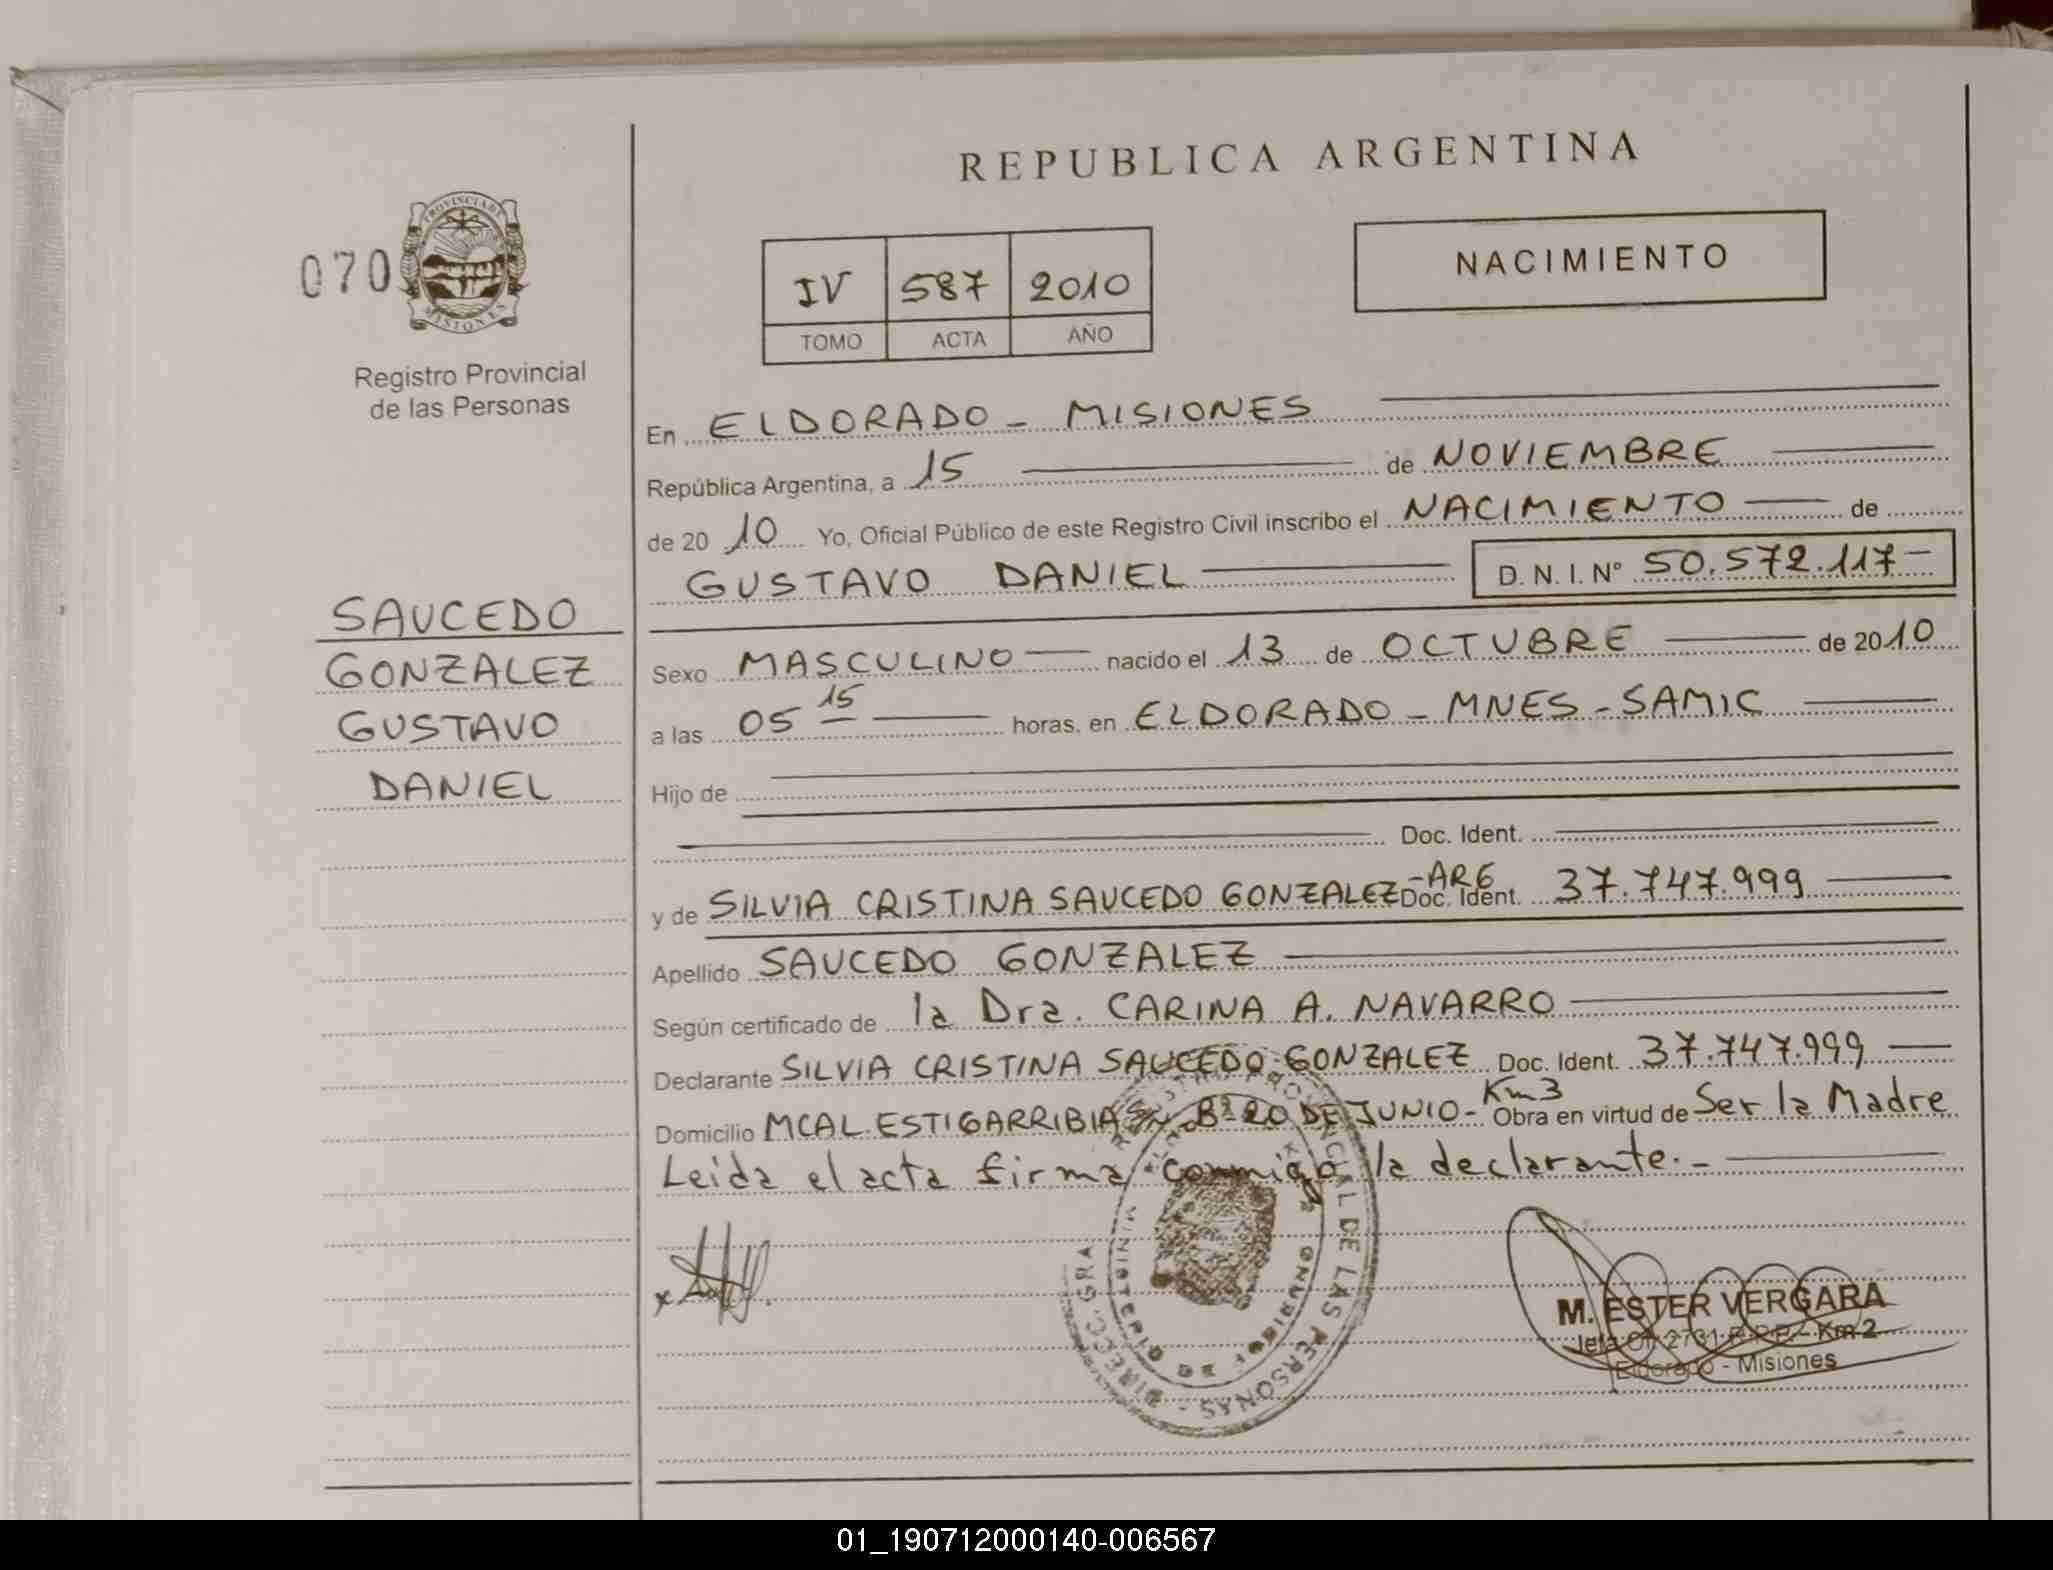 REPUBLICA ARGENTINA
070
PROVINCIA DE MISIONES
Registro Provincial
de las Personas
IV 587 2010
TOMO ACTA AÑO
NACIMIENTO
En ELDORADO - MISIONES
República Argentina, a 15 de NOVIEMBRE
de 20 10 Yo, Oficial Público de este Registro Civil inscribo el NACIMIENTO de
GUSTAVO DANIEL D.N.I.Nº 50.572.117-
SAUCEDO
GONZALEZ
GUSTAVO
DANIEL
Sexo MASCULINO nacido el 13 de OCTUBRE de 2010
a las 05 15 horas, en ELDORADO - MNES - SAMIC
Hijo de
Doc. Ident.
y de SILVIA CRISTINA SAUCEDO GONZALEZ -ARG Doc. Ident. 37.747.999
Apellido SAUCEDO GONZALEZ
Según certificado de la Dra. CARINA A. NAVARRO
Declarante SILVIA CRISTINA SAUCEDO GONZALEZ Doc. Ident. 37.747.999
Domicilio MCAL.ESTIGARRIBIA S/N Bº 20 DE JUNIO - Km3 Obra en virtud de Ser la Madre
Leida el acta firma conmigo la declarante.-
DIRECC. GRAL. REGISTRO PROVINCIAL DE LAS PERSONAS -
MINISTERIO DE
M. ESTER VERGARA
Jefa Of. 2731 R.P.P. - Km 2
Eldorado - Misiones
01_190712000140-006567